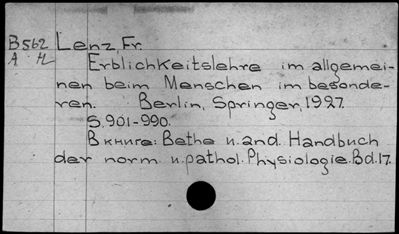 B562 Lenz, Fr.
A H Erblichkeitslehre im allgemei-
nen beim Menschen im besonde-
ren. Berlin, Springer, 1927.
S. 901-990.
В книге: Bethe u. and. Handbuch
der norm. u. pathol. Physiologie. Bd. 17.